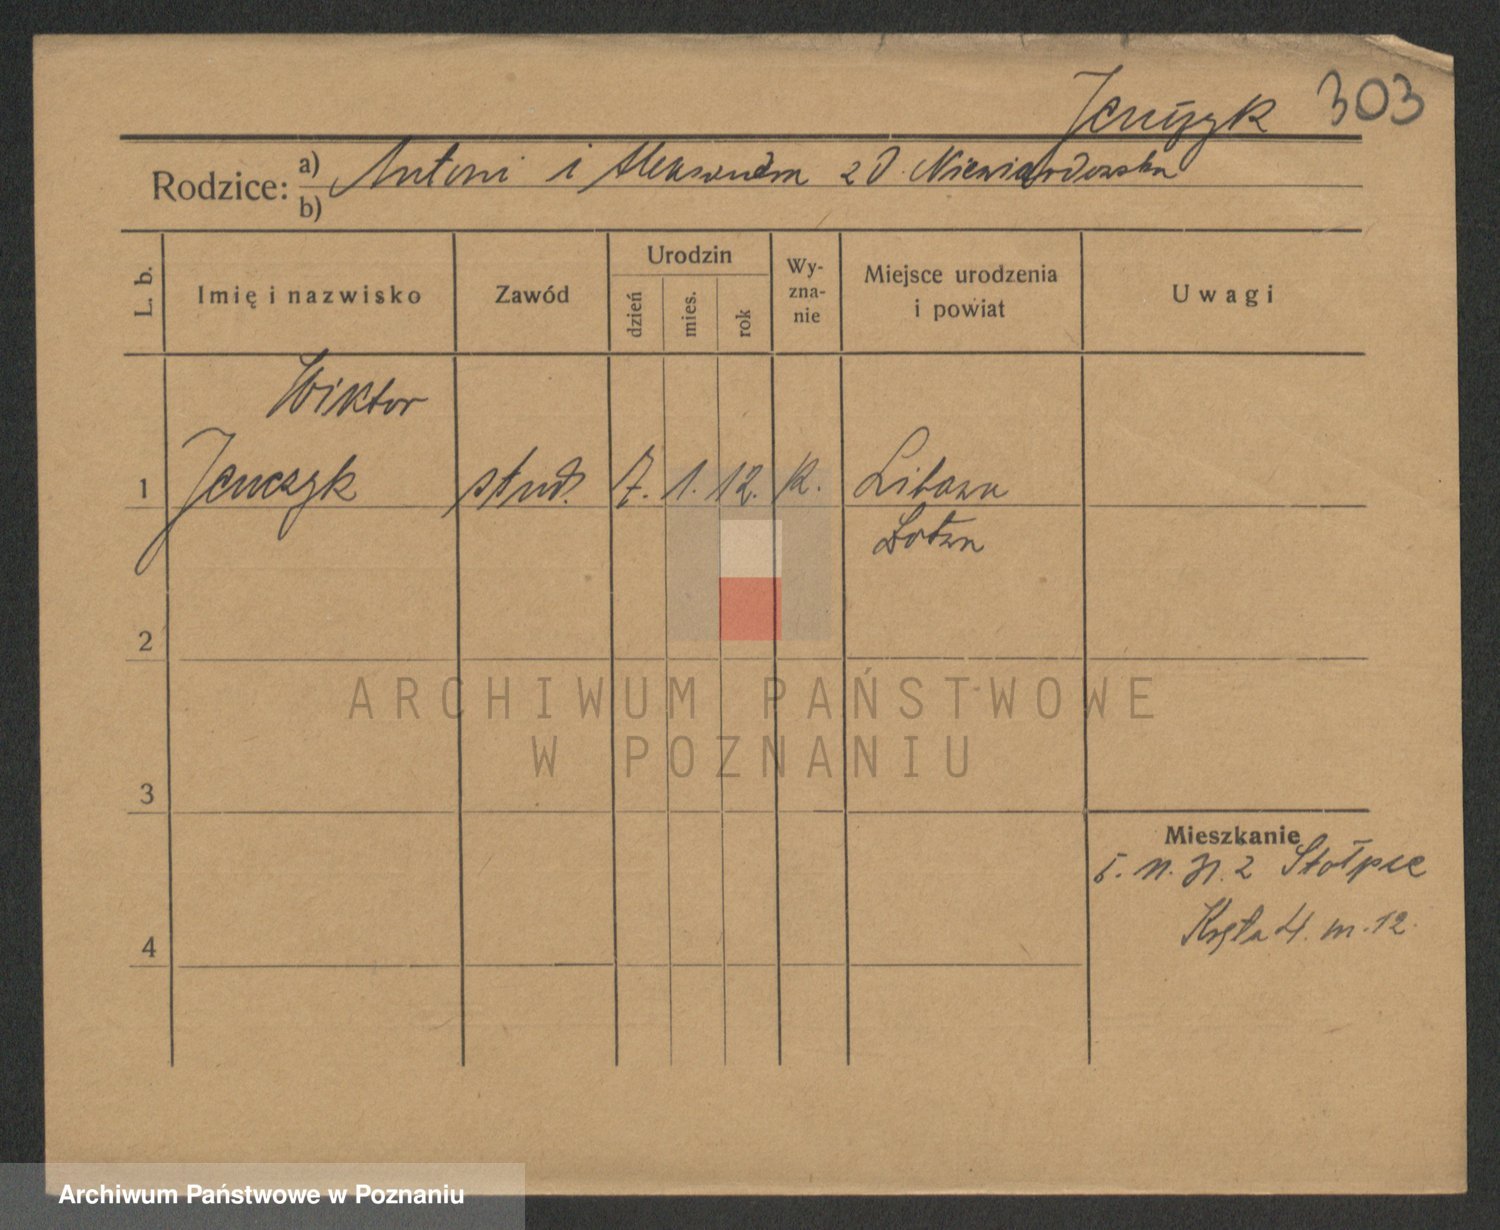 Jenczyk 303
Rodzice: a) Antoni i Aleksandra z d. Niewiardowska
b)
L. b. Imię i nazwisko Zawód Urodzin dzień mies. rok Wyznanie Miejsce urodzenia i powiat Uwagi
Wiktor
1 Jenczyk stud. 7. 1. 12. k. Libawa
Łotwa
2
ARCHIWUM PAŃSTWOWE
W POZNANIU
3
Mieszkanie
Stołpce
4 Kręta 4. m. 12.
Archiwum Państwowe w Poznaniu